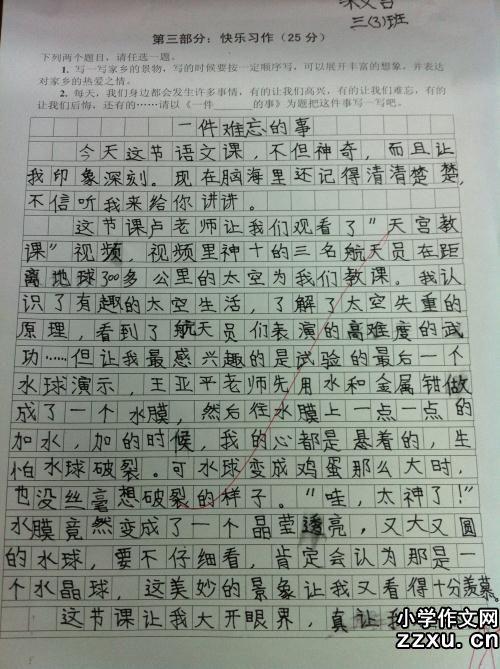 三(3)班
第三部分：快乐习作（25分）
下列两个题目，请任选一题。
1．写一写家乡的景物，写的时候要按一定顺序写，可以展开丰富的想象，并表达
对家乡的热爱之情。
2．每天，我们身边都会发生许多事情，有的让我们高兴，有的让我们难忘，有的
让我们后悔，还有的……请以《一件______的事》为题把这件事写一写吧。
一件难忘的事
今天这节语文课，不但神奇，而且让
我印象深刻。现在脑海里还记得清清楚楚，
不信听我来给你讲讲。
这节课卢老师让我们观看了“天宫教
课”视频，视频里神十的三名航天员在距
离地球300多公里的太空为我们教课。我认
识了有趣的太空生活，了解了太空失重的
原理，看到了航天员们表演的高难度的武
功……但让我最感兴趣的是试验的最后一个
水球演示，王亚平老师先用水和金属钳做
成了一个水膜，然后往水膜上一点一点的
加水，加的时候，我的心都是悬着的，生
怕水球破裂。可水球变成鸡蛋那么大时，
也没丝毫想破裂的样子。“哇，太神了！”
水膜竟然变成了一个晶莹透亮，又大又圆
的水球，要不仔细看，肯定会认为那是一
个水晶球，这美妙的景象让我又看得十分羡慕。
这节课让我大开眼界，真让我
小学作文网
zzxu.cn